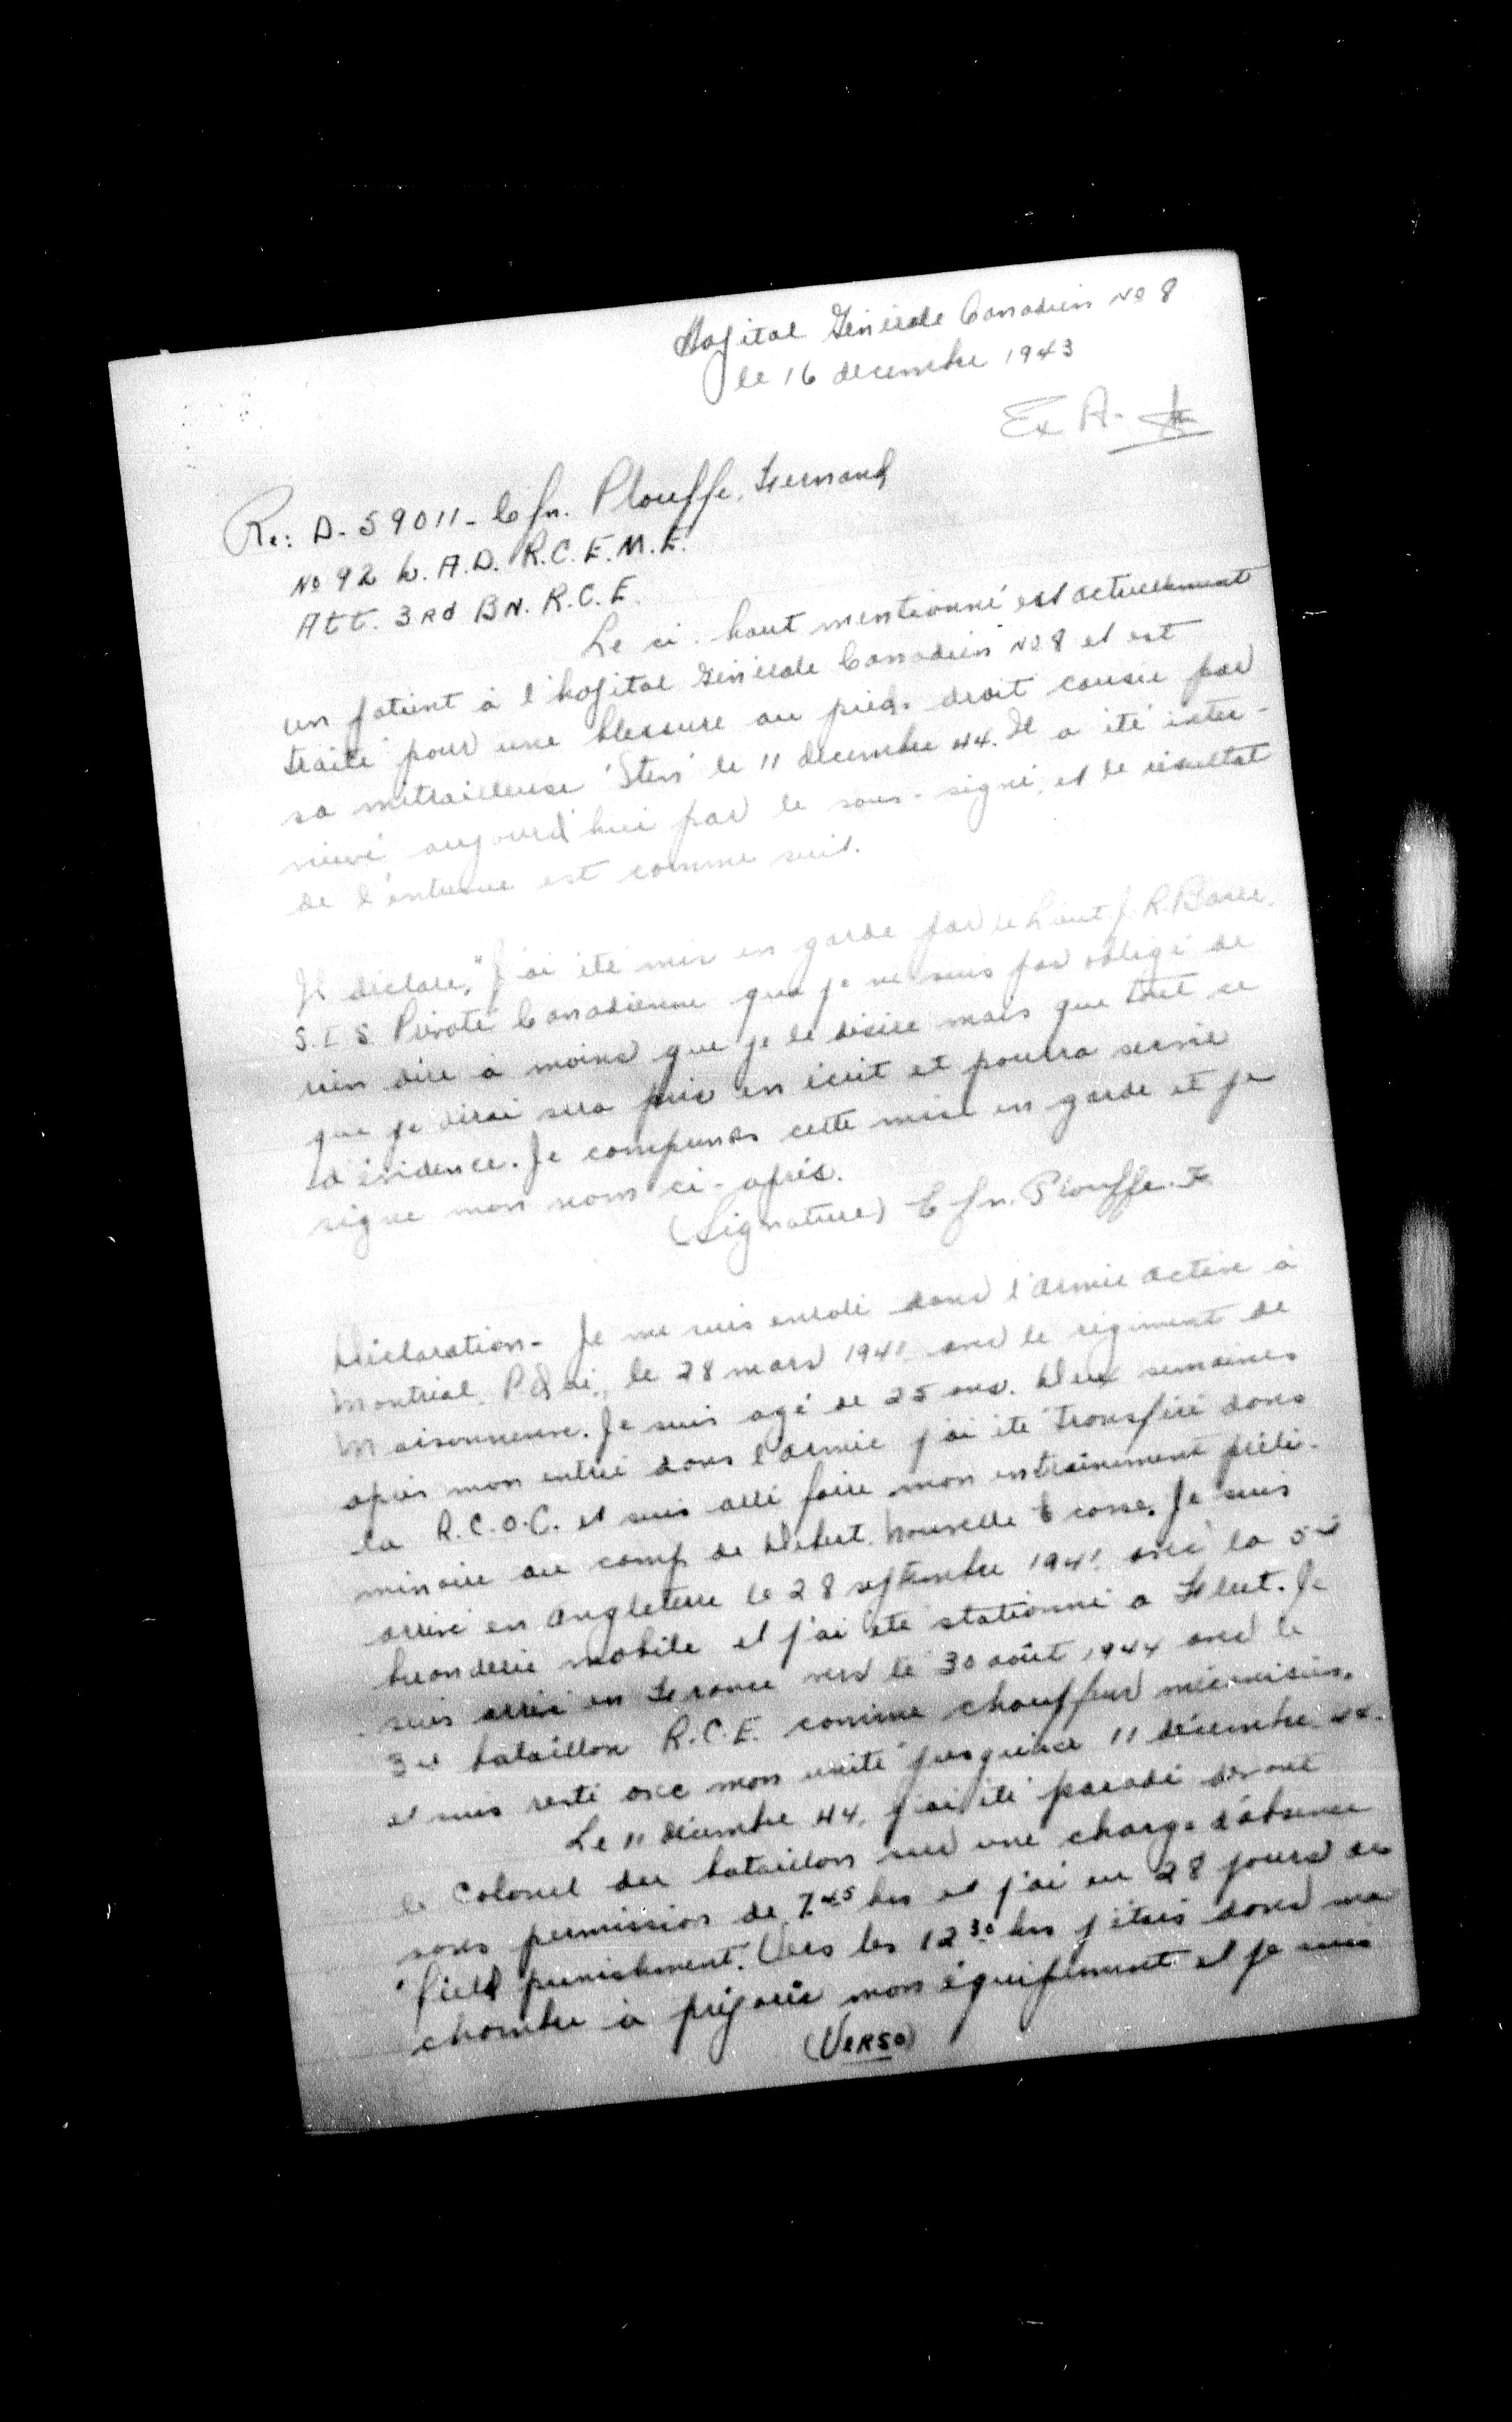 Hopital Générale Canadien No 8
le 16 decembre 1943
Ex A.
Re: D-59011- Cfn. Plouffe, Fernand
No 92 L.A.D. R.C.E.M.E.
Att. 3rd BN. R.C.E.
Le ci-haut mentionné est actuellement
un patient à l'hopital Générale Canadien No 8 et est
traité pour une blessure au pied droit causée par
sa mitrailleuse 'Sten' le 11 decembre 44. Il a été inter-
viewé aujourd'hui par le sous-signé, et le résultat
de l'entrevue est comme suit.
Il déclare, "J'ai été mis en garde par le Lieut J.R.
S.I.S. Prévoté Canadienne que je ne suis pas obligé de
rien dire à moins que je le désire mais que tout ce
que je dirai sera pris en écrit et pourra servir
d'évidence. Je comprends cette mise en garde et je
signe mon nom ci-après.
(Signature) Cfn. Plouffe. F
Déclaration- Je me suis enrolé dans l'armée active à
Montréal, P. le 28 mars 1941 avec le régiment de
Maisonneuve. Je suis agé de 25 ans. Deux semaines
après mon entrée dans l'armée j'ai été transféré dans
la R.C.O.C. et suis allé faire mon entrainement préli-
minaire au camp de Debert Nouvelle Ecosse. Je suis
arrivé en Angleterre le 28 septembre 1941 avec la 5e
buanderie mobile et j'ai été stationné a Fleet. Je
suis arrivé en France vers le 30 août 1944 avec le
3e bataillon R.C.E. comme chauffeur mécanicien.
et suis resté avec mon unité jusqu'au 11 décembre 44.
Le 11 décembre 44, j'ai été paradé devant
le Colonel du bataillon sur une charge d'absence
sans permission de 7.45 hrs et j'ai eu 28 jours de
'field punishment. Vers les 12 30 hrs j'étais dans ma
chambre à préparér mon équipement et je suis
(VERSO)